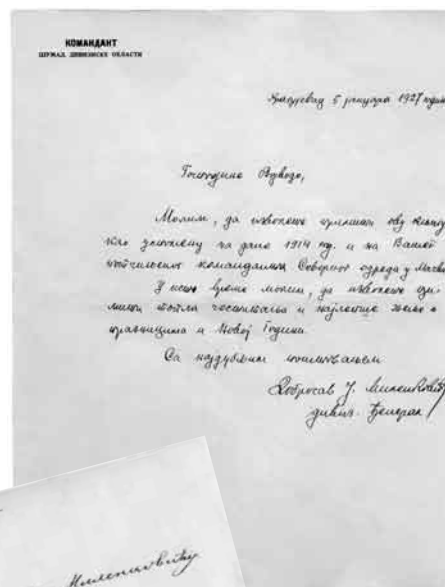 КОМАНДАНТ
ШУМАД. ДИВИЗИСКЕ ОБЛАСТИ
5 јануара 1927
Господине Војводо,
Молим, да изволите примити ову књигу
као успомену на дане 1914 год. и на Вашег
потчињеног команданта Соборног одреда у Мачви
У исто време молим, да изволите
топла честитања и најлепше жеље о
празницима и Новој Години.
Са најдубљим поштовањем
Добросав Ј. Миленковић
дивиз. Ђенерал
Миленковићу